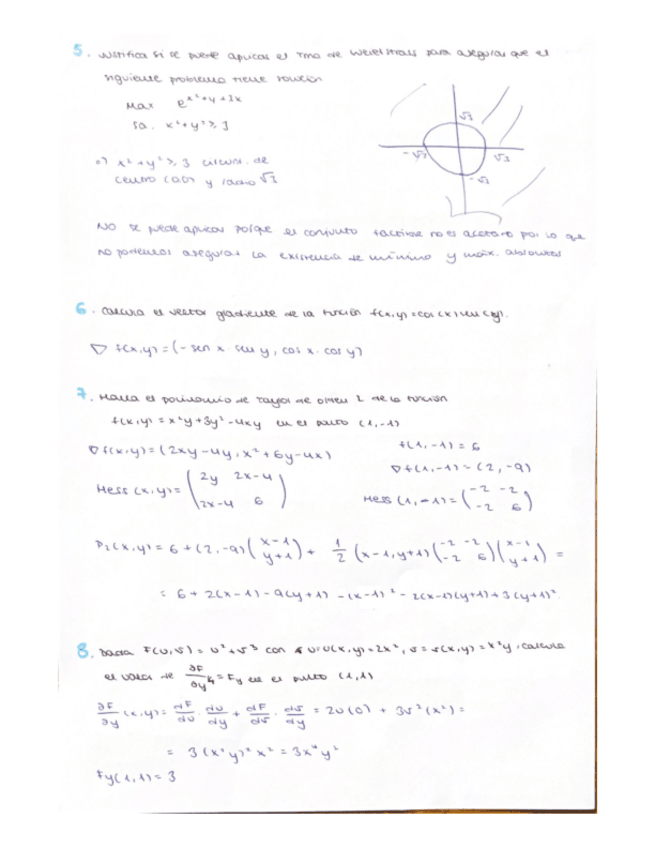 5. Justifica si se puede aplicar el Tma de Weierstrass para asegurar que el
siguiente problema tiene solución
Max e^x²+y+3x
sa. x²+y²≥3
=> x²+y²≥3 circun. de
centro (0,0) y radio √3
√3
-√3
√3
-√3
No se puede aplicar porque el conjunto factible no es acotado por lo que
no podemos asegurar la existencia de mínimo y máx. absolutos
6. Calcula el vector gradiente de la función f(x,y)=cos(x)sen(y).
∇ f(x,y)=(-sen x · sen y, cos x · cos y)
7. Halla el polinomio de Taylor de orden 2 de la función
f(x,y)=x²y+3y²-4xy en el punto (1,-1)
∇f(x,y)=(2xy-4y, x²+6y-4x)
f(1,-1)=6
∇f(1,-1)=(2,-9)
Hess (x,y)=(2y 2x-4
2x-4 6)
Hess (1,-1)=(-2 -2
-2 6)
P₂(x,y)=6+(2,-9)(x-1
y+1)+ 1/2 (x-1,y+1)(-2 -2
-2 6)(x-1
y+1)=
= 6+2(x-1)-9(y+1)-(x-1)²-2(x-1)(y+1)+3(y+1)².
8. Dada F(u,v)=u²+v³ con u=u(x,y)=2x², v=v(x,y)=x²y, calcula
el valor de ∂F/∂y=Fy en el punto (1,1)
∂F/∂y (x,y)= dF/du · du/dy + dF/dv · dv/dy = 2u(0) + 3v²(x²)=
= 3(x²y)²x²=3x⁴y²
Fy(1,1)=3